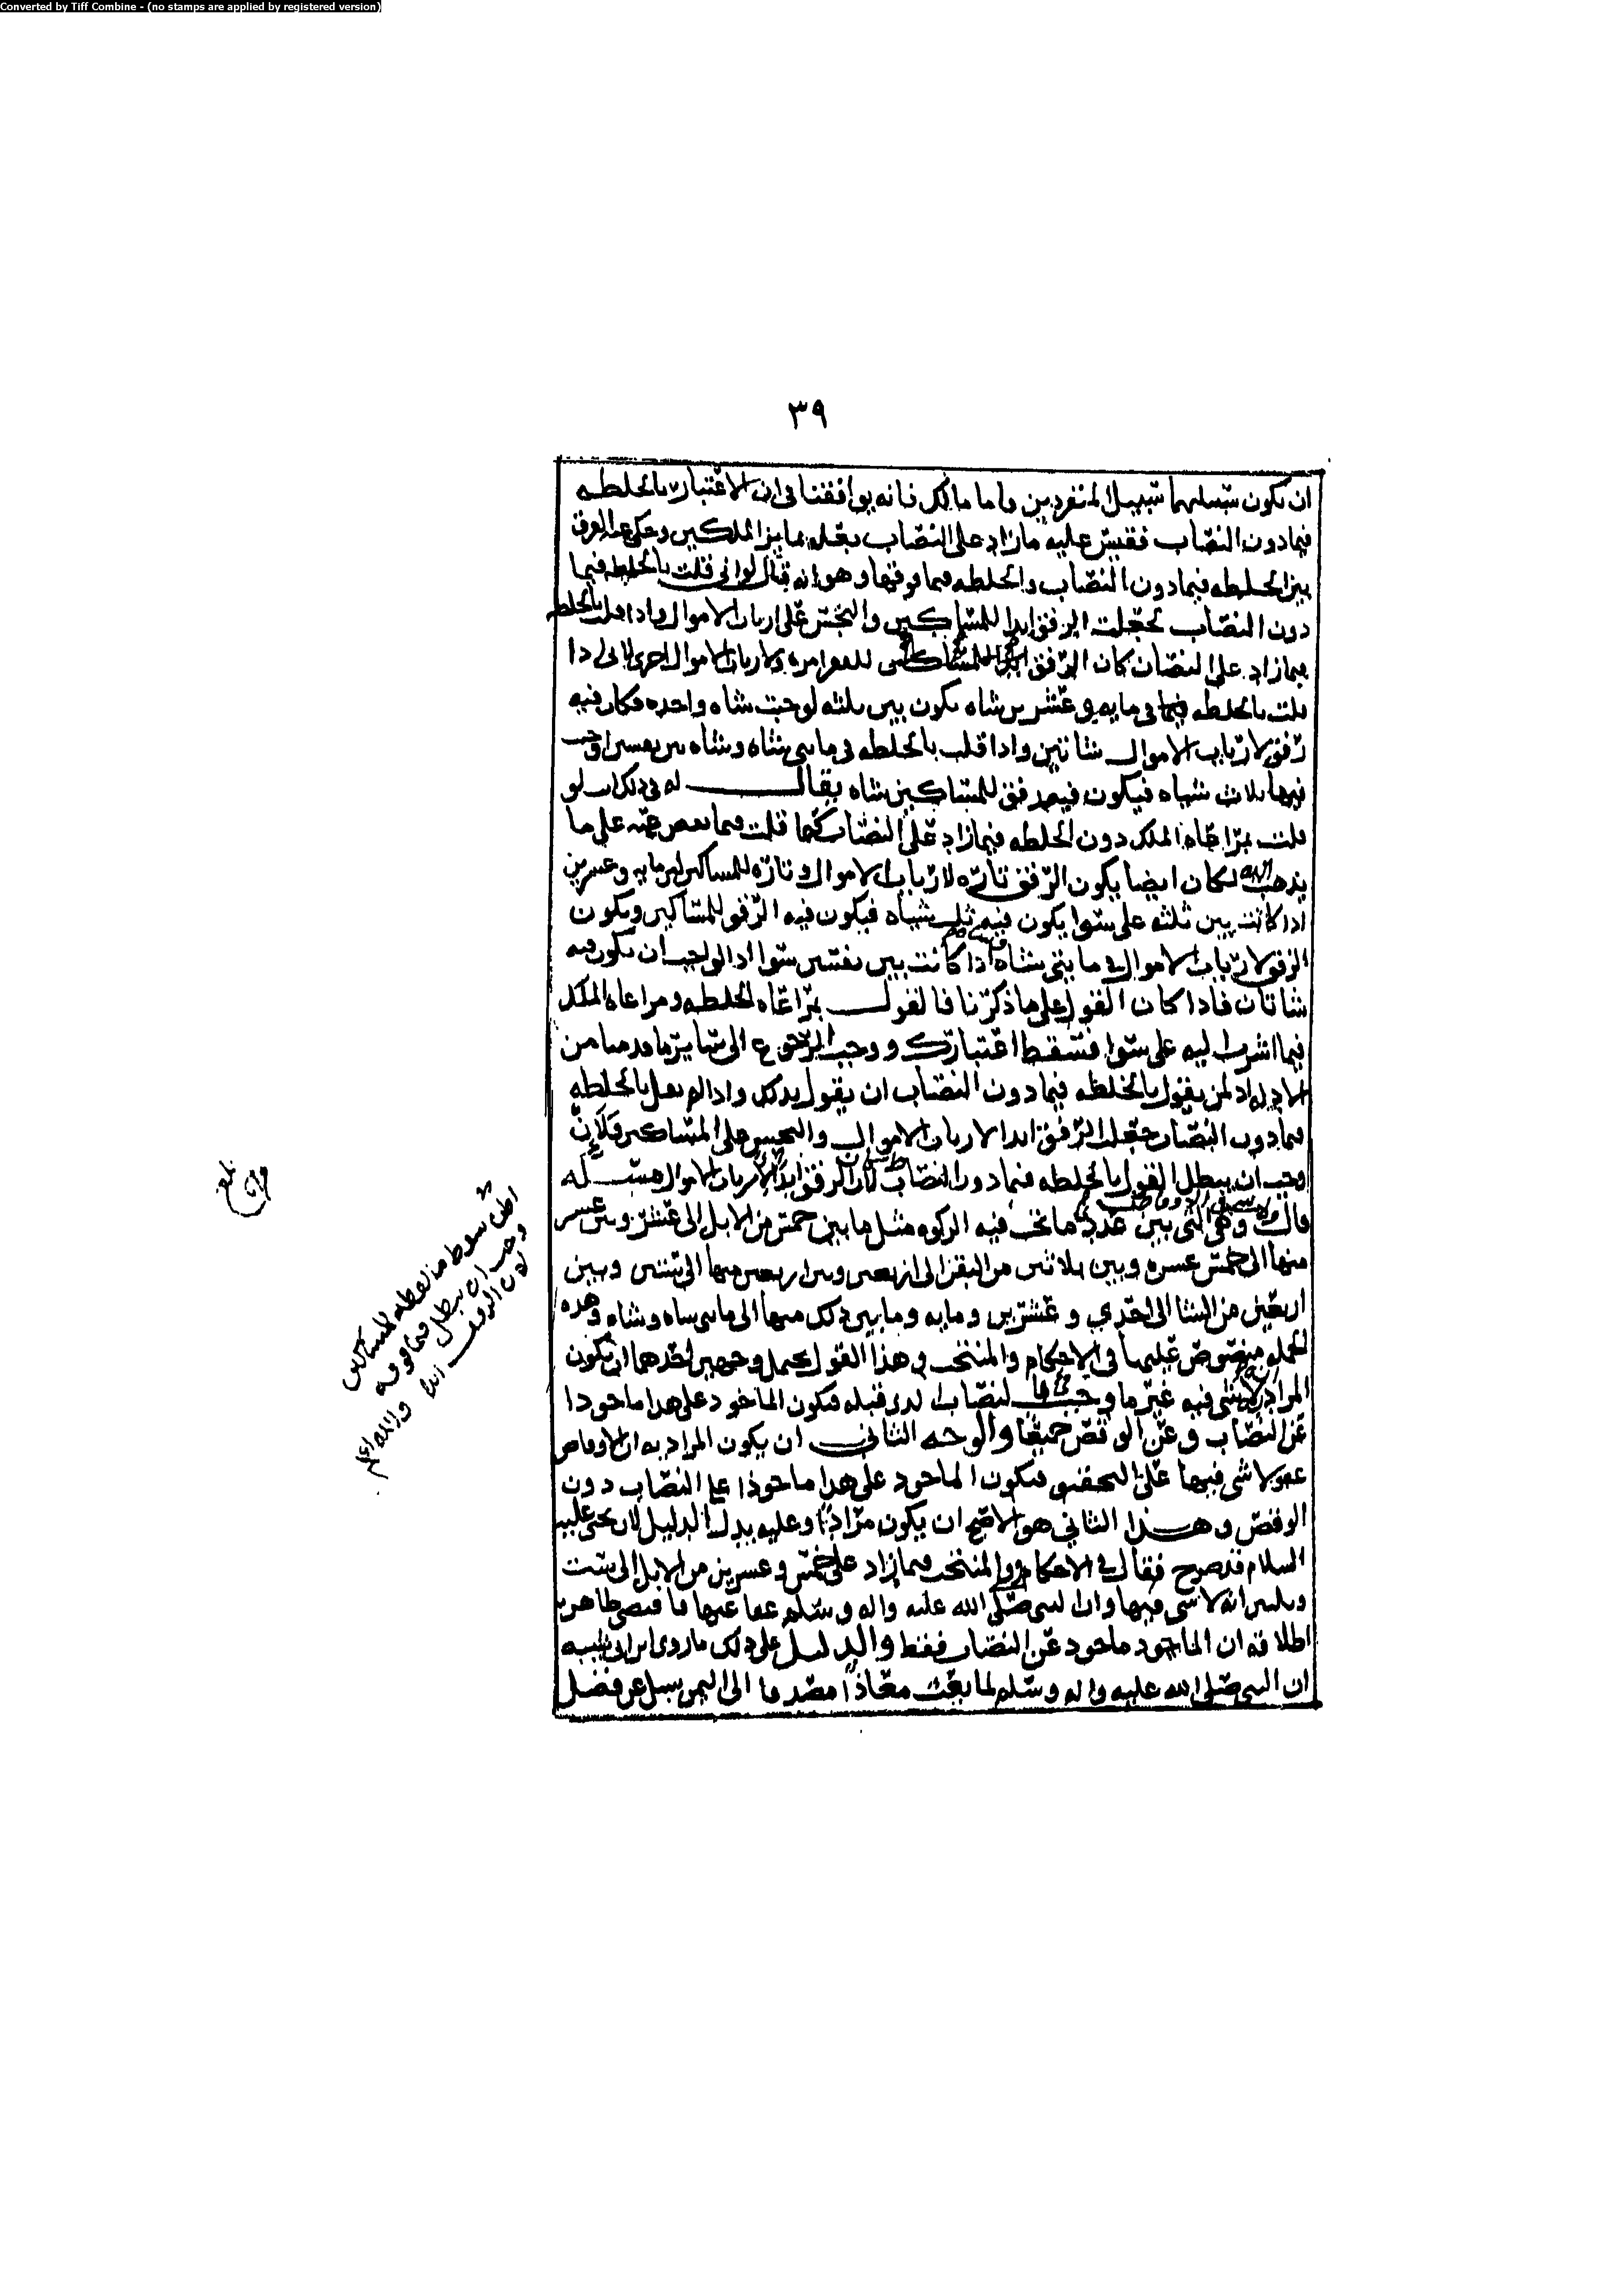 Converted by Tiff Combine - (no stamps are applied by registered version)
٣٩
ان تكون سبيلهما سبيل المنفردين واما مالك فانه يوافقنا في ان الاعتبار بالخلطه
فيما دون النصاب فنقيس عليه ما زاد على النصاب بعله ما بين الملكين وحكى عنه الفرق
بين الخلطه فيما دون النصاب والخلطه فيما فوقها وهو انه قال لو اني قلت بالخلطه فيما
دون النصاب لجعلت الرفق ابدا للمساكين والبخس على ارباب الاموال واذا قلت بالخلطه
فيما زاد على النصاب كان الرفق للفقرا مره ولارباب الاموال اخرى لاني اذا
قلت بالخلطه في مايه وعشرين شاه تكون بين ثلثه لوجبت شاه واحده فكان فيه
رفق لارباب الاموال شاتين واذا قلت بالخلطه في مايتي شاه وشاه بين نفسين اوجبت
فيها ثلاث شياه فيكون فيه رفق للمساكين بشاه يقال له في ذلك انت لو
قلت بمراعاه الملك دون الخلطه فيما زاد على النصاب كما قلت فيما نقص عنه على ما
يذهب اليه لكان ايضا يكون الرفق تاره لارباب الاموال وتاره للمساكين لان مايه وعشرين
اذا كانت بين ثلثه على سوا يكون فيه ثلث شياه فيكون فيه الرفق للمساكين ويكون
الرفق لارباب الاموال في مايتي شاه اذا كانت بين نفسين سوا اذ الواجب ان يكون فيه
شاتان فاذا كان القول على ما ذكرنا فالقول بمراعاه الخلطه ومراعاه الملك
فيما اشرت اليه على سوا فسقط اعتبارك ووجب الرجوع الى ساير ما قدمنا من
الادله اذ لمن يقول بالخلطه فيما دون النصاب ان يقول بذلك واذا لم يقل بالخلطه
فيما دون النصاب جعلت الرفق ابدا لارباب الاموال والبخس على المساكين فلان
وجب ان يبطل القول بالخلطه فيما دون النصاب لان الرفق ابدا لارباب الاموال مسئله
قال ولا شي في الاوقاص وهي التي بين عدد ما تجب فيه الزكوه مثل ما بين خمس من الابل الى عشر وبين عشر
منها الى خمس عشره وبين ثلاثين من البقر الى اربعين وبين اربعين منها الى ستين وبين
اربعين من الشا الى احدي وعشرين ومايه وما بين ذلك منها الى مايتي شاه وشاه وهذه
الجمله منصوص عليها في الاحكام والمنتخب وهذا القول يحتمل وجهين احدهما ان يكون
المراد لا شي فيه غير ما وجب في النصاب الذي قبله فيكون الماخوذ على هذا ماخوذا
عن النصاب وعن الوقص جميعا والوجه الثاني ان يكون المراد به ان الاوقاص
عفو لا شي فيها على التحقيق فيكون الماخوذ على هذا ماخوذا عن النصاب دون
الوقص وهذا الثاني هو الاصح ان يكون مرادا وعليه يدل الدليل لان يحيى عليه
السلام قد صرح فقال في الاحكام والمنتخب فيما زاد على خمس وعشرين من الابل الى ست
وثلثين انه لا شي فيها وان النبي صلى الله عليه واله وسلم عفا عنها فاقتضى ظاهر
اطلاقه ان الماخوذ ماخوذ عن النصاب فقط والدليل على ذلك ما روى ابن ابي شيبه
ان النبي صلى الله عليه واله وسلم لما بعث معاذا مصدقا الى اليمن سئل عن فضل
بلغ
اظن سقوط من لفظه للمساكين
وجب ان يبطل فيما فوقه
لان الرفق ابدا والله اعلم